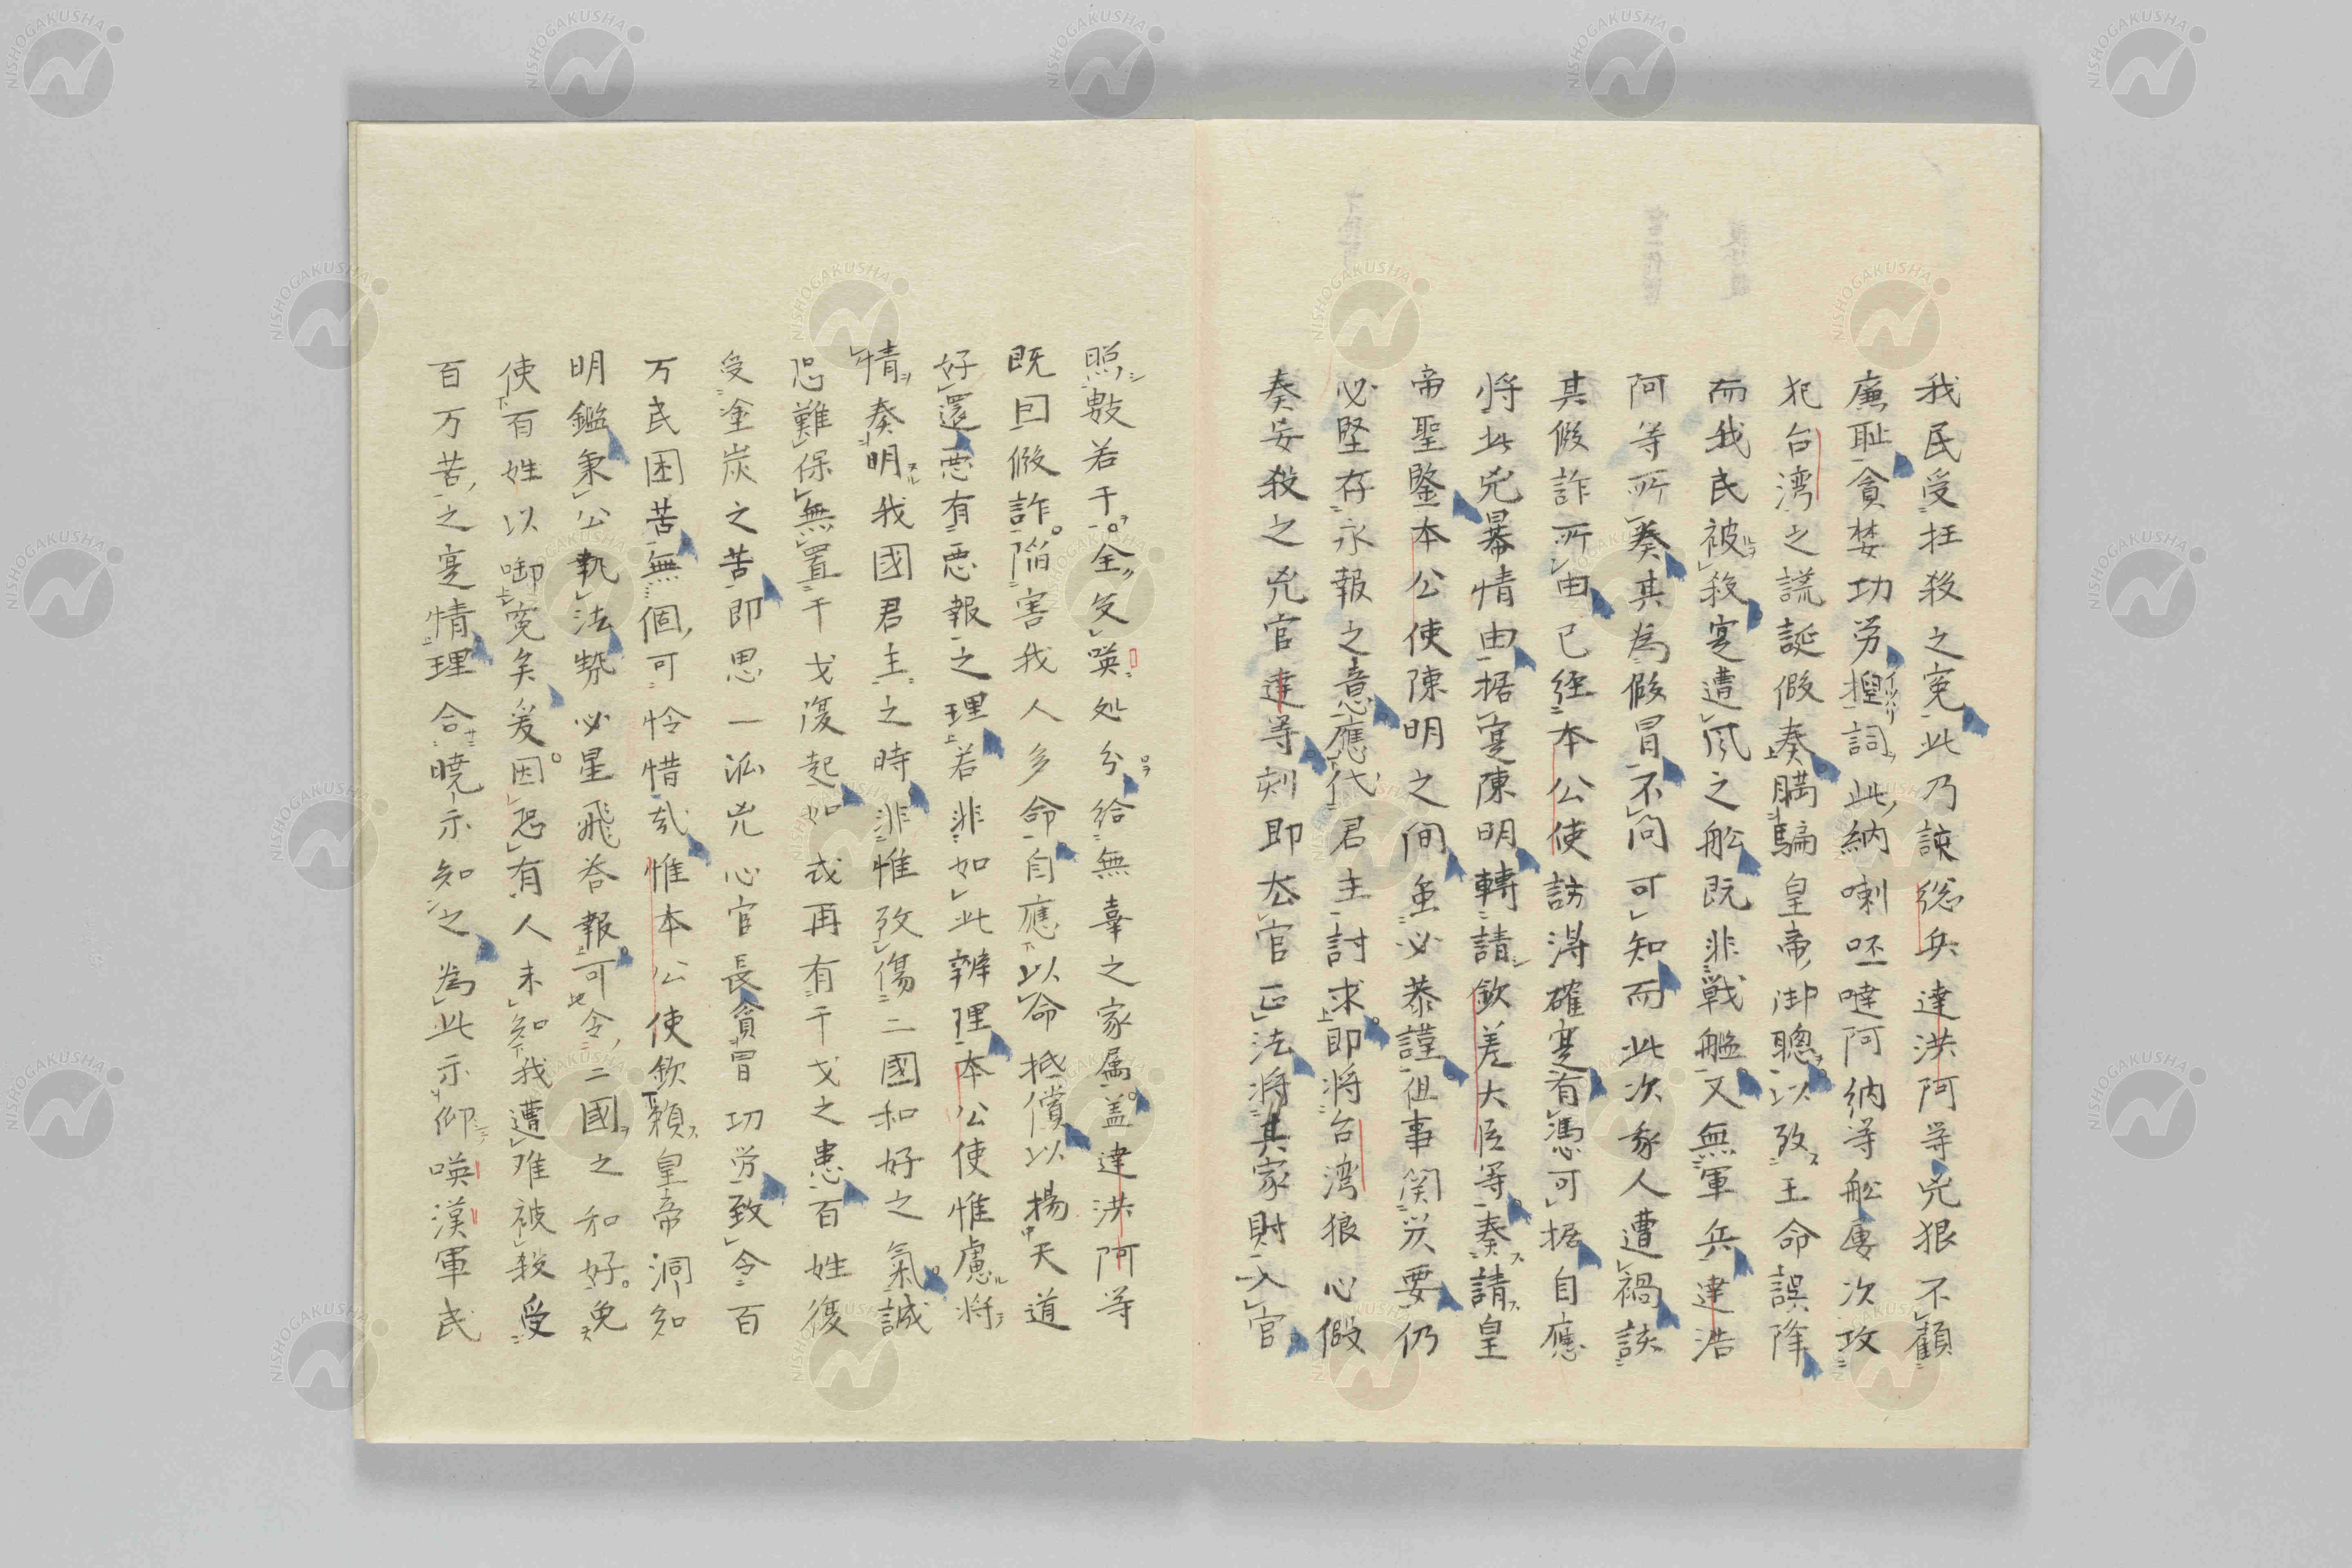 我民受抂殺之寃此乃該総兵達洪阿等兇狠不顧
廉耻貪婪功労揑詞此納喇呸噠阿納等舩屡次攻
犯台湾之謊誕假奏瞒騙皇帝御聰以致王命誤降
而我民被殺寔遭風之舩既非戦艦又無軍兵達浩
阿等所奏其為假冒不问可知而此次家人遭禍該
其假詐所由已経本公使訪得確寔有憑可据自應
将此兇暴情由据寔陳明轉請欽差大臣等奏請皇
帝聖鑒本公使陳明之间虽必恭謹但事関緊要仍
必堅存永報之意應代君主討求即将台湾狼心假
奏妄殺之兇官達等刻即去官正法将其家財入官
照数若干全交唤处分給無辜之家属盖達洪阿等
既囙假詐陷害我人多命自應以命抵償以揚天道
好還悪有悪報之理若非如此辨理本公使惟慮将
情奏明我國君主之時非惟致傷二國和好之氣誠
恐難保無置干戈復起如或再有干戈之患百姓復
受塗炭之苦即思一泒兇心官長貪冒功労致令百
万民困苦無個可怜惜哉惟本公使欽頼皇帝洞知
明鑑秉公執法勢必星飛咨報可令二國之和好免
使百姓以啣寃矣爰因恐有人未知我遭难被殺受
百万苦之寔情理合曉示知之為此示仰唤漢軍民